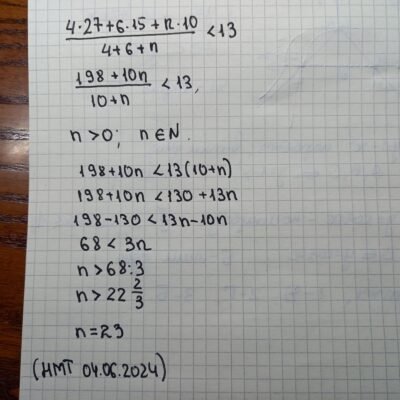 (4·27+6·15+n·10)/(4+6+n) < 13
(198+10n)/(10+n) < 13,
n > 0; n ∈ N.
198+10n < 13(10+n)
198+10n < 130+13n
198-130 < 13n-10n
68 < 3n
n > 68:3
n > 22 2/3
n = 23
(НМТ 04.06.2024)